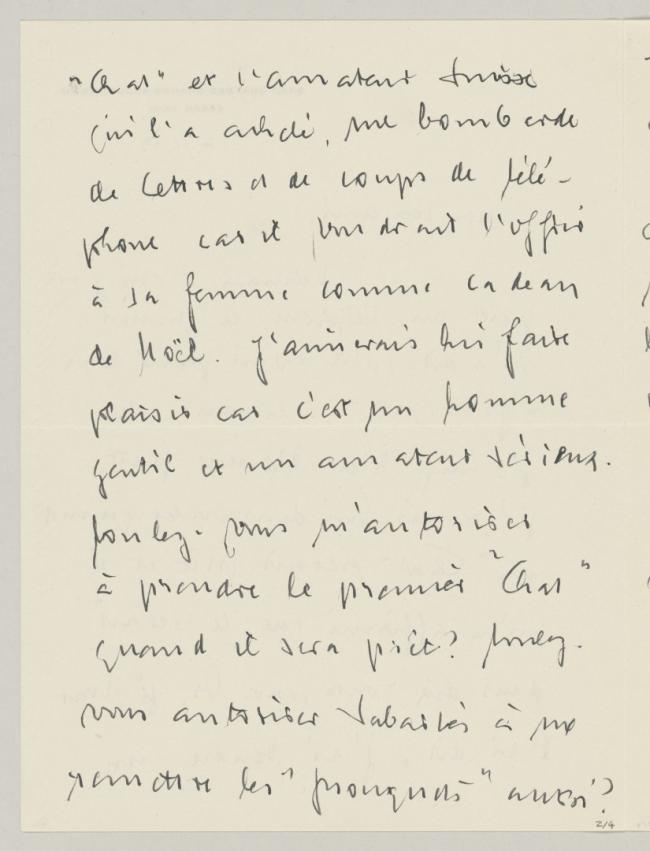 "Chat" et l'amateur suisse
qui l'a acheté, me bombarde
de lettres et de coups de télé-
phone car il voudrait l'offrir
à sa femme comme cadeau
de Noël. J'aimerais lui faire
plaisir car c'est un homme
gentil et un amateur sérieux.
Voulez-vous m'autoriser
à prendre le premier "Chat"
quand il sera prêt? Voulez-
vous autoriser Susse à me
remettre les "bouquets" aussi?
2/4